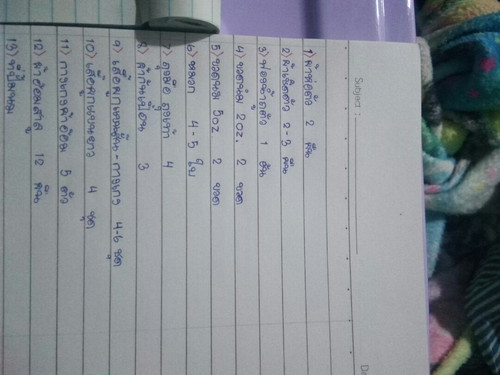 Subject :
1) ผ้าห่อตัว 2 ผืน
2) ผ้าเช็ดตัว 2 - 3 ผืน
3) ฟองน้ำถูตัว 1 อัน
4) ขวดนม 2oz. 2 ขวด
5) ขวดนม 5oz 2 ขวด
6) หมวก 4 - 5 ใบ
7) ถุงมือ ถุงเท้า 4
8) ผ้ากันเปื้อน 3
9) เสื้อผูกแขนสั้น - กางเกง 4-6 ชุด
10) เสื้อผูกแขนยาว 4 ชุด
11) กางเกงผ้าอ้อม 5 ตัว
12) ผ้าอ้อมสาลู 12 ผืน
13) ที่ปั๊มนม